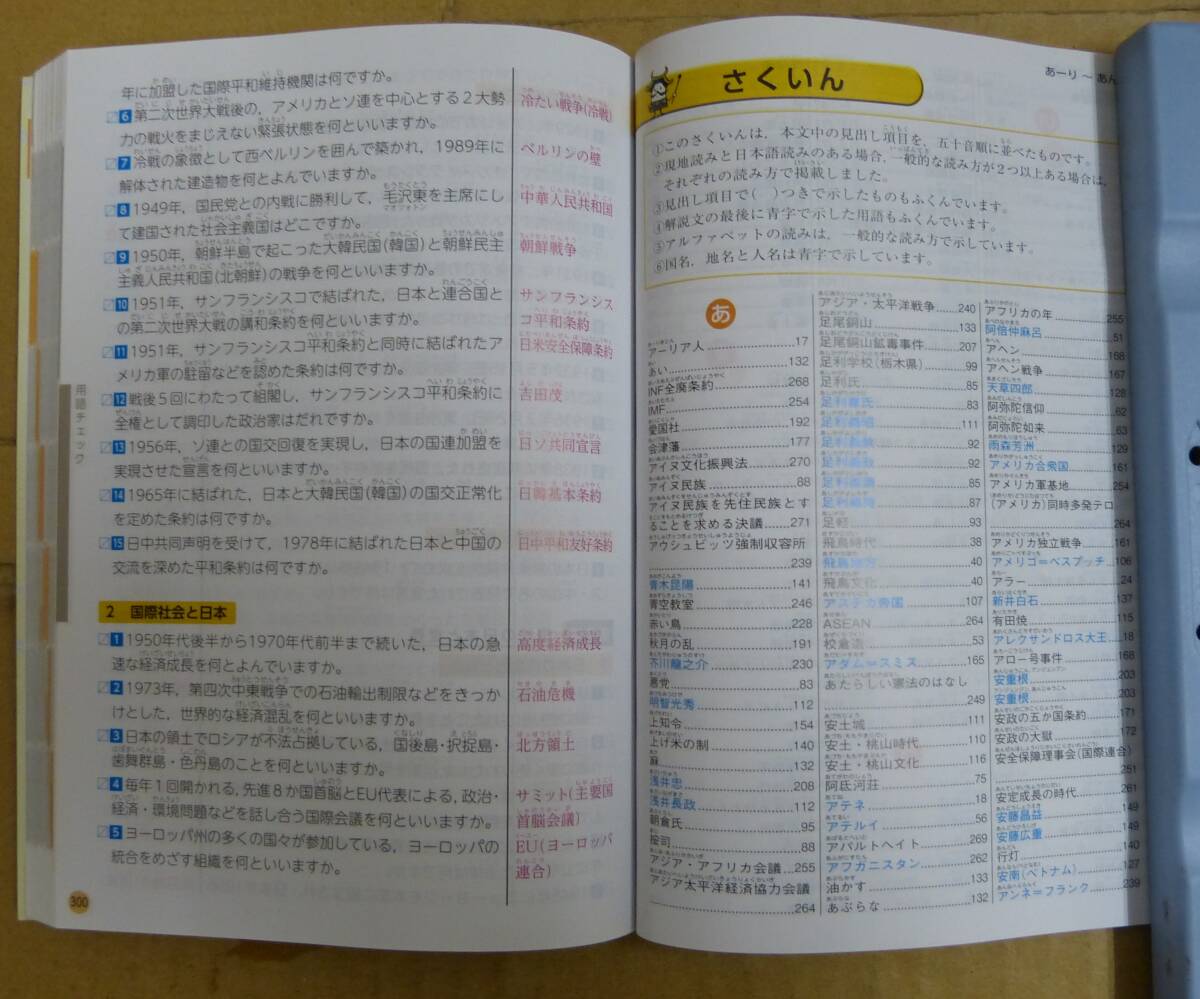 年に加盟した国際平和維持機関は何ですか。
6 第二次世界大戦後の，アメリカとソ連を中心とする2大勢
力の戦火をまじえない緊張状態を何といいますか。
冷たい戦争(冷戦)
7 冷戦の象徴として西ベルリンを囲んで築かれ，1989年に
解体された建造物を何とよんでいますか。
ベルリンの壁
8 1949年，国民党との内戦に勝利して，毛沢東を主席にし
て建国された社会主義国はどこですか。
中華人民共和国
9 1950年，朝鮮半島で起こった大韓民国(韓国)と朝鮮民主
主義人民共和国(北朝鮮)の戦争を何といいますか。
朝鮮戦争
10 1951年，サンフランシスコで結ばれた，日本と連合国と
の第二次世界大戦の講和条約を何といいますか。
サンフランシス
コ平和条約
11 1951年，サンフランシスコ平和条約と同時に結ばれたア
メリカ軍の駐留などを認めた条約は何ですか。
日米安全保障条約
12 戦後5回にわたって組閣し，サンフランシスコ平和条約に
全権として調印した政治家はだれですか。
吉田茂
13 1956年，ソ連との国交回復を実現し，日本の国連加盟を
実現させた宣言を何といいますか。
日ソ共同宣言
14 1965年に結ばれた，日本と大韓民国(韓国)の国交正常化
を定めた条約は何ですか。
日韓基本条約
15 日中共同声明を受けて，1978年に結ばれた日本と中国の
交流を深めた平和条約は何ですか。
日中平和友好条約
2 国際社会と日本
1 1950年代後半から1970年代前半まで続いた，日本の急
速な経済成長を何とよんでいますか。
高度経済成長
2 1973年，第四次中東戦争での石油輸出制限などをきっか
けとした，世界的な経済混乱を何といいますか。
石油危機
3 日本の領土でロシアが不法占拠している，国後島・択捉島・
歯舞群島・色丹島のことを何といいますか。
北方領土
4 毎年1回開かれる，先進8か国首脳とEU代表による，政治・
経済・環境問題などを話し合う国際会議を何といいますか。
サミット(主要国
首脳会議)
5 ヨーロッパ州の多くの国々が参加している，ヨーロッパの
統合をめざす組織を何といいますか。
EU(ヨーロッパ
連合)
用語チェック
300
さくいん
あーり～あん
①このさくいんは，本文中の見出し項目を，五十音順に並べたものです。
②現地読みと日本語読みのある場合，一般的な読み方が2つ以上ある場合は，
それぞれの読み方で掲載しました。
③見出し項目で( )つきで示したものもふくんでいます。
④解説文の最後に青字で示した用語もふくんでいます。
⑤アルファベットの読みは，一般的な読み方で示しています。
⑥国名，地名と人名は青字で示しています。
あ
アーリア人 17
あい 132
INF全廃条約 268
IMF 254
愛国社 192
会津藩 177
アイヌ文化振興法 270
アイヌ民族 88
アイヌ民族を先住民族とす
ることを求める決議 271
アウシュビッツ強制収容所
239
青木昆陽 141
青空教室 246
赤い鳥 228
秋月の乱 191
芥川龍之介 230
悪党 83
明智光秀 112
上知令 154
上げ米の制 140
麻 132
浅井忠 208
浅井長政 112
朝倉氏 95
按司 88
アジア・アフリカ会議 255
アジア太平洋経済協力会議
264
アジア・太平洋戦争 240
足尾銅山 133
足尾銅山鉱毒事件 207
足利学校(栃木県) 99
足利氏 85
足利尊氏 83
足利義昭 111
足利義政 92
足利義視 92
足利義満 85
足利義持 87
足軽 93
飛鳥時代 38
飛鳥地方 40
飛鳥文化 40
アステカ帝国 107
ASEAN 264
校倉造 53
アダム＝スミス 165
あたらしい憲法のはなし
249
安土城 111
安土・桃山時代 110
安土・桃山文化 116
阿氐河荘 75
アテネ 18
アテルイ 56
アパルトヘイト 269
アフガニスタン 262
油かす 133
あぶらな 132
アフリカの年 255
阿倍仲麻呂 51
アヘン 168
アヘン戦争 167
天草四郎 128
阿弥陀信仰 62
阿弥陀如来 63
雨森芳洲 129
アメリカ合衆国 161
アメリカ軍基地 254
(アメリカ)同時多発テロ
264
アメリカ独立戦争 161
アメリゴ＝ベスプッチ 106
アラー 24
新井白石 137
有田焼 115
アレクサンドロス大王 18
アロー号事件 168
安重根 203
安重根 203
安政の五か国条約 171
安政の大獄 172
安全保障理事会(国際連合)
251
安定成長の時代 261
安藤昌益 149
安藤広重 149
行灯 140
安南(ベトナム) 127
アンネ＝フランク 239